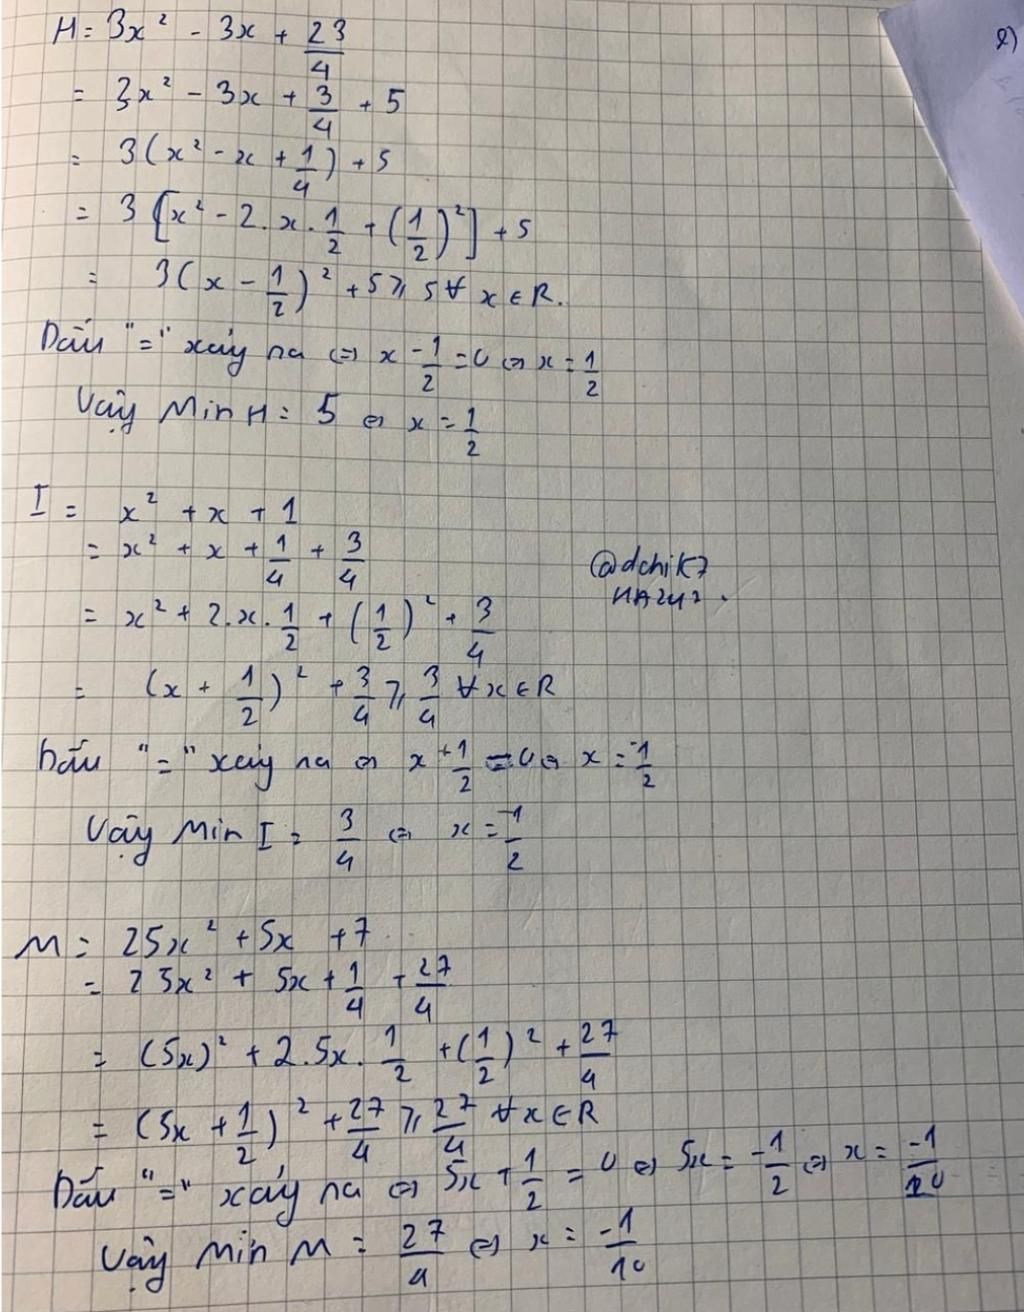 H = 3x² - 3x + 23/4
= 3x² - 3x + 3/4 + 5
= 3(x² - x + 1/4) + 5
= 3[x² - 2.x.1/2 + (1/2)²] + 5
= 3(x - 1/2)² + 5 ≥ 5 ∀ x ∈ R.
Dấu "=" xảy ra ⇔ x - 1/2 = 0 ⇔ x = 1/2
Vậy Min H = 5 ⇔ x = 1/2
I = x² + x + 1
= x² + x + 1/4 + 3/4
= x² + 2.x.1/2 + (1/2)² + 3/4
= (x + 1/2)² + 3/4 ≥ 3/4 ∀ x ∈ R
Dấu "=" xảy ra ⇔ x + 1/2 = 0 ⇔ x = -1/2
Vậy Min I = 3/4 ⇔ x = -1/2
@dchik7
M = 25x² + 5x + 7
= 25x² + 5x + 1/4 + 27/4
= (5x)² + 2.5x.1/2 + (1/2)² + 27/4
= (5x + 1/2)² + 27/4 ≥ 27/4 ∀ x ∈ R
Dấu "=" xảy ra ⇔ 5x + 1/2 = 0 ⇔ 5x = -1/2 ⇔ x = -1/10
Vậy Min M = 27/4 ⇔ x = -1/10